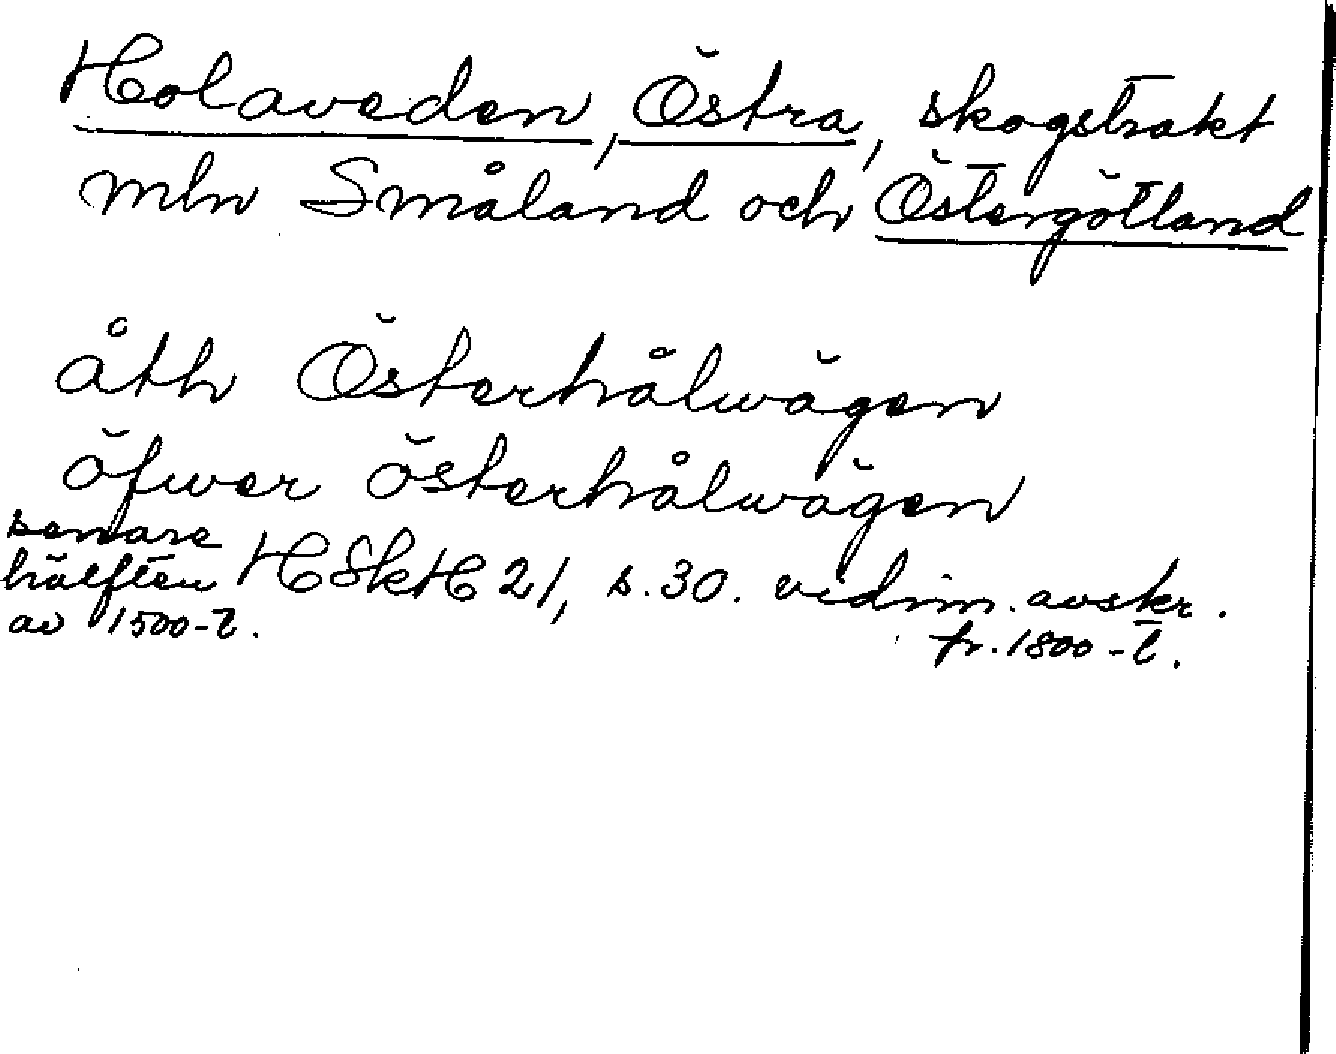 Holaveden, Östra, skogstrakt
mln Småland och Östergötland
åth Österhålwägen
öfwer österhålwägen
senare
hälften HSkH 21, s. 30. vidim. avskr.
av 1500-t. fr. 1800-t.